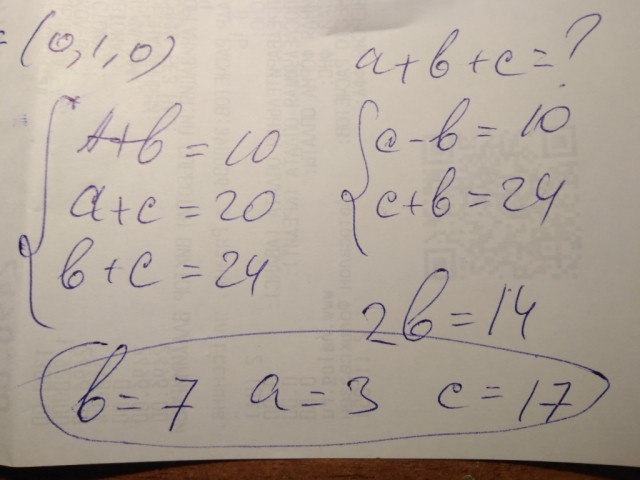 = (0,1,0)
a+b+c=?
A+b=10
a+c=20
b+c=24
c-b=10
c+b=24
2b=14
b=7 a=3 c=17